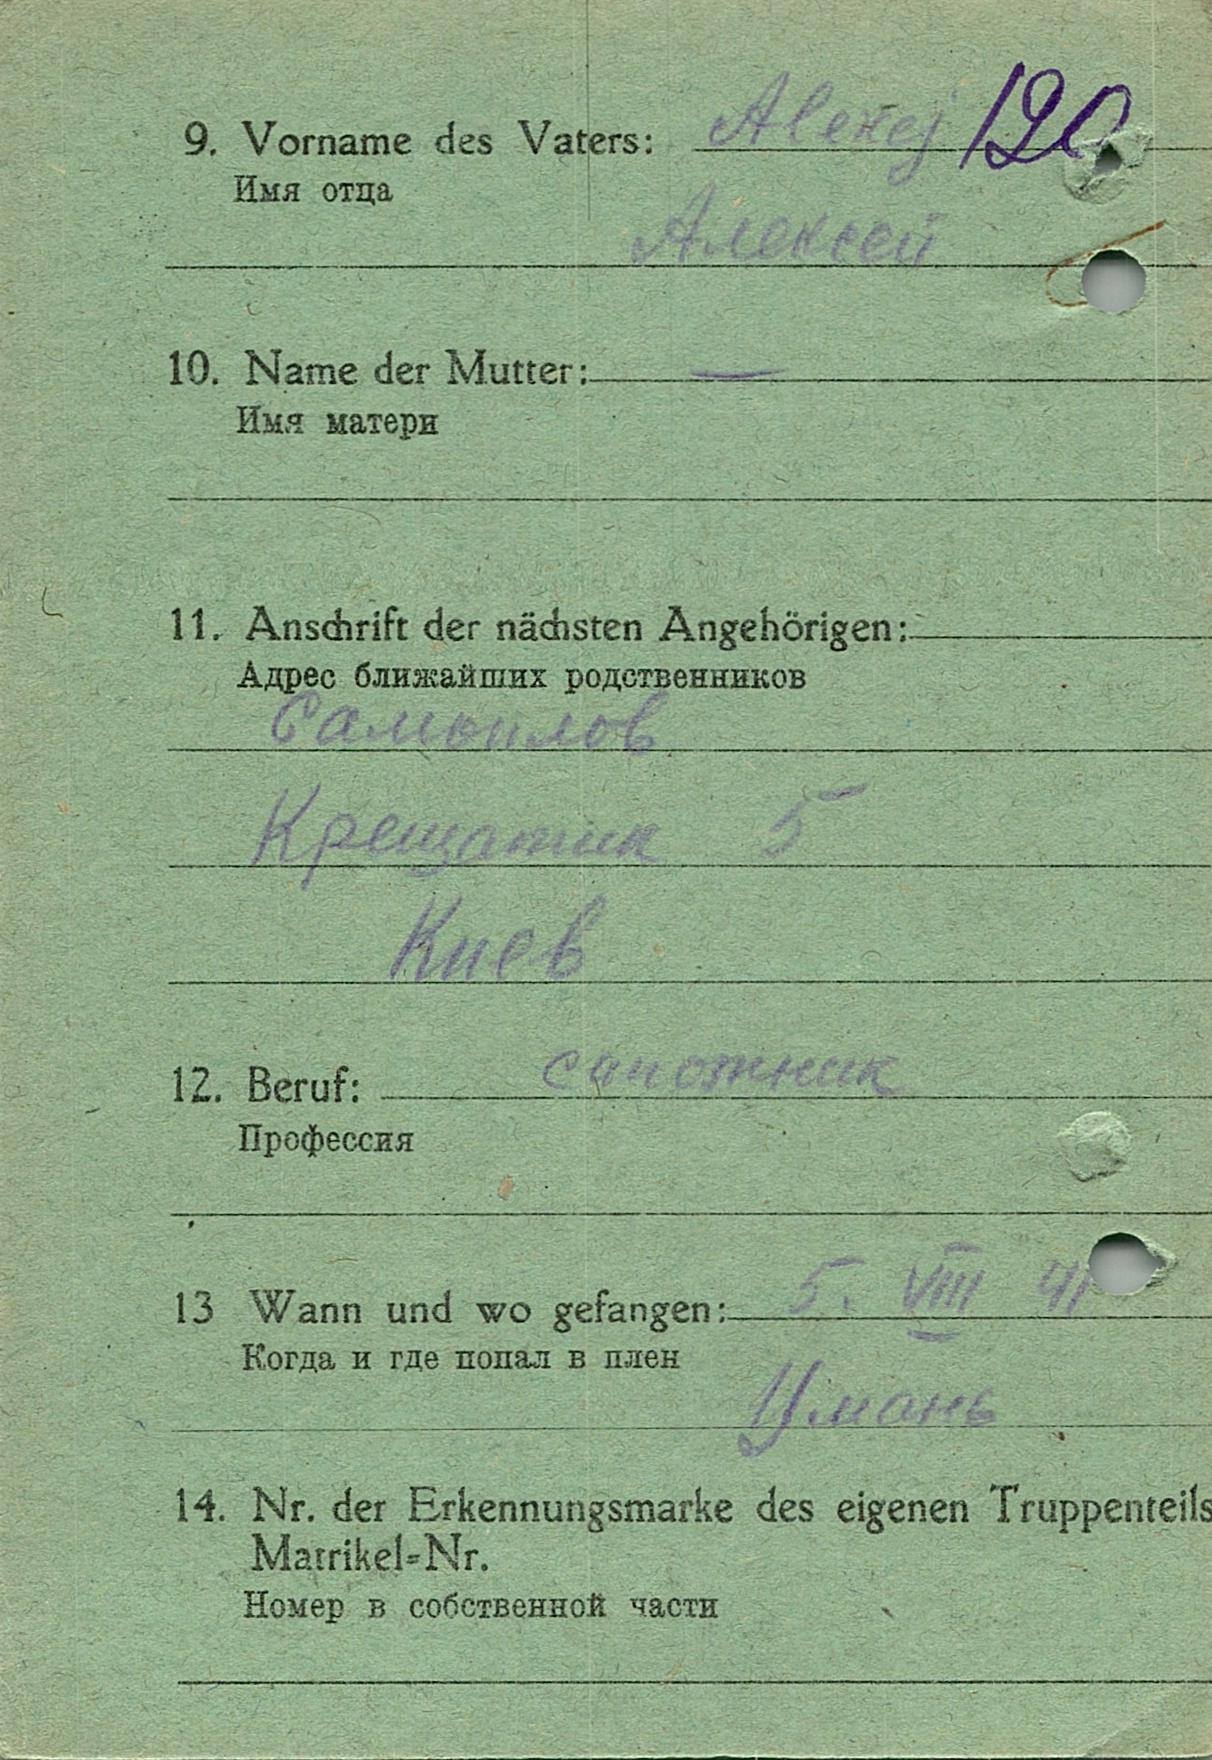 9. Vorname des Vaters: Alexej 190
Имя отца
Алексей
10. Name der Mutter: —
Имя матери
11. Anschrift der nächsten Angehörigen:
Адрес ближайших родственников
Крещатик 5
Киев
12. Beruf: сапожник
Профессия
13 Wann und wo gefangen: 5. VIII 41
Когда и где попал в плен
Умань
14. Nr. der Erkennungsmarke des eigenen Truppenteils
Matrikel=Nr.
Номер в собственной части